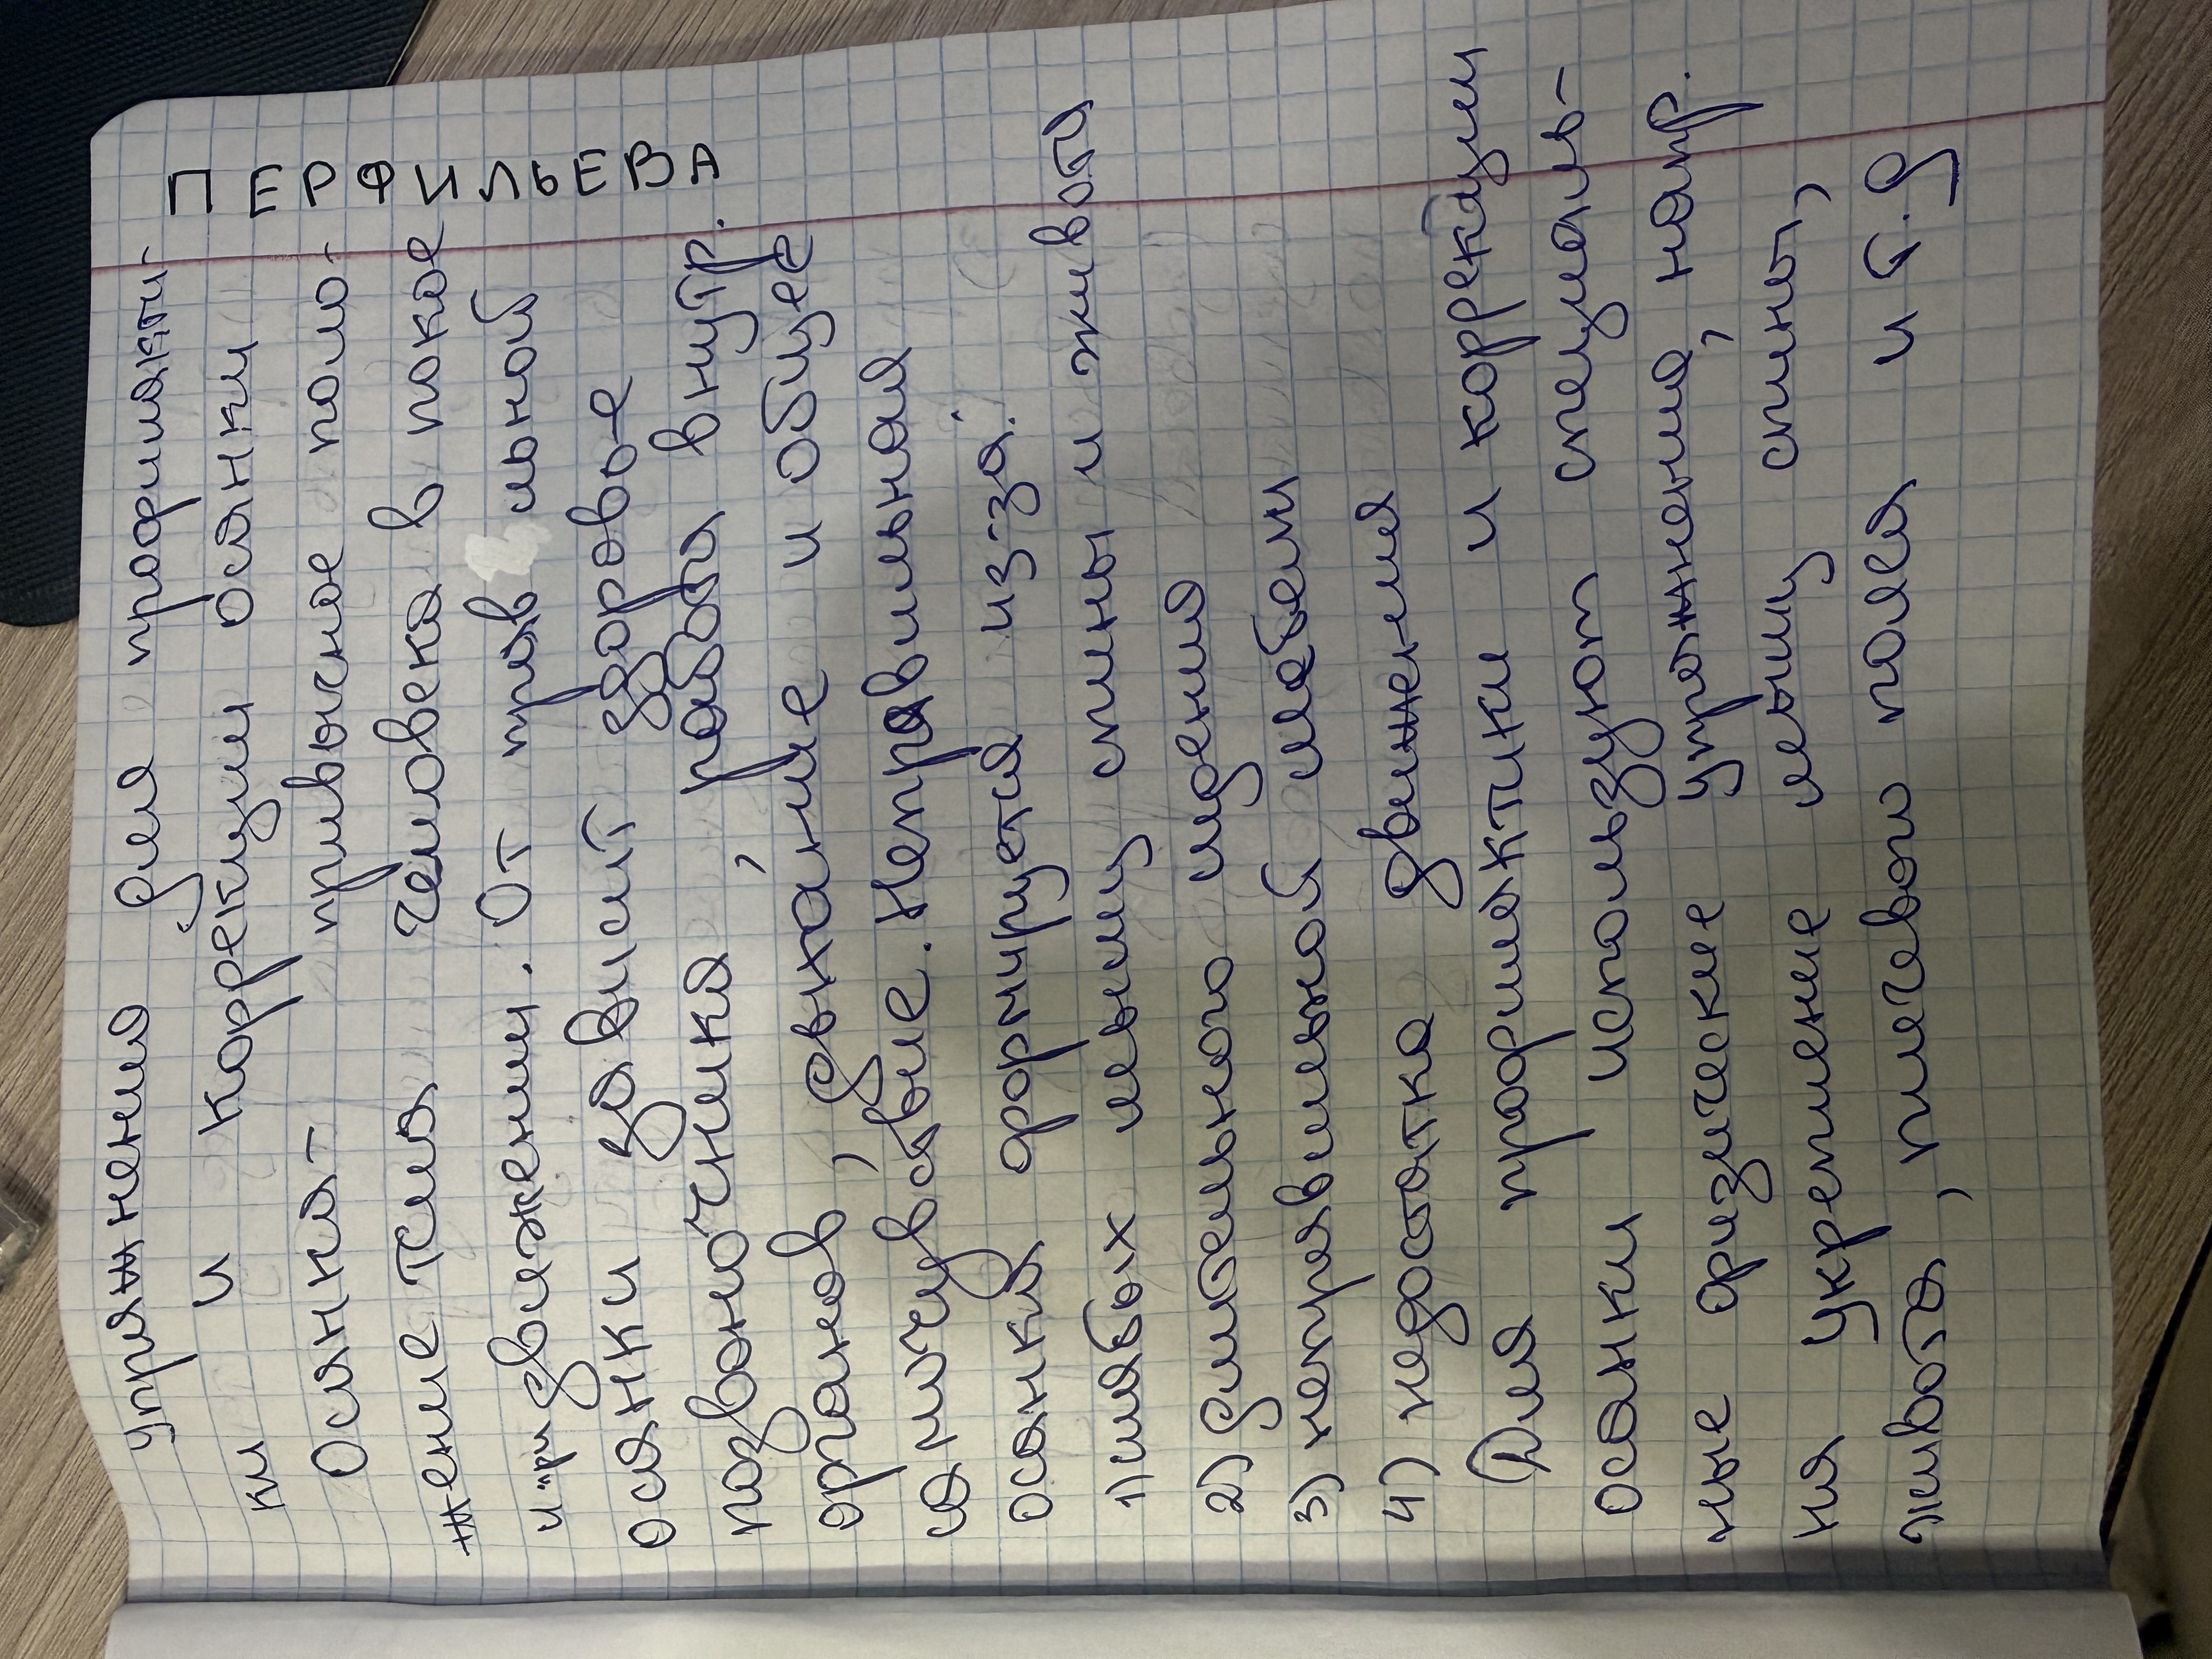 ПЕРФИЛЬЕВА
Упражнения для профилакти-
ки и коррекции осанки
Осанка- привычное поло-
жение тела человека в покое
и при движении. От правльной
осанки зависит здоровье
позвоночника, работа внутр.
органов, дыхание и общее
самочувствие. Неправильная
осанка формируется из-за:
1) слабых мышц спины и живота
2) длительного сидения
3) неправильной мебели
4) недостатка движения
Для профилактики и коррекции
осанки используют специаль-
ные физические упражнения, напр.
на укрепление мышц спины,
живота, плечевого пояса и т.д